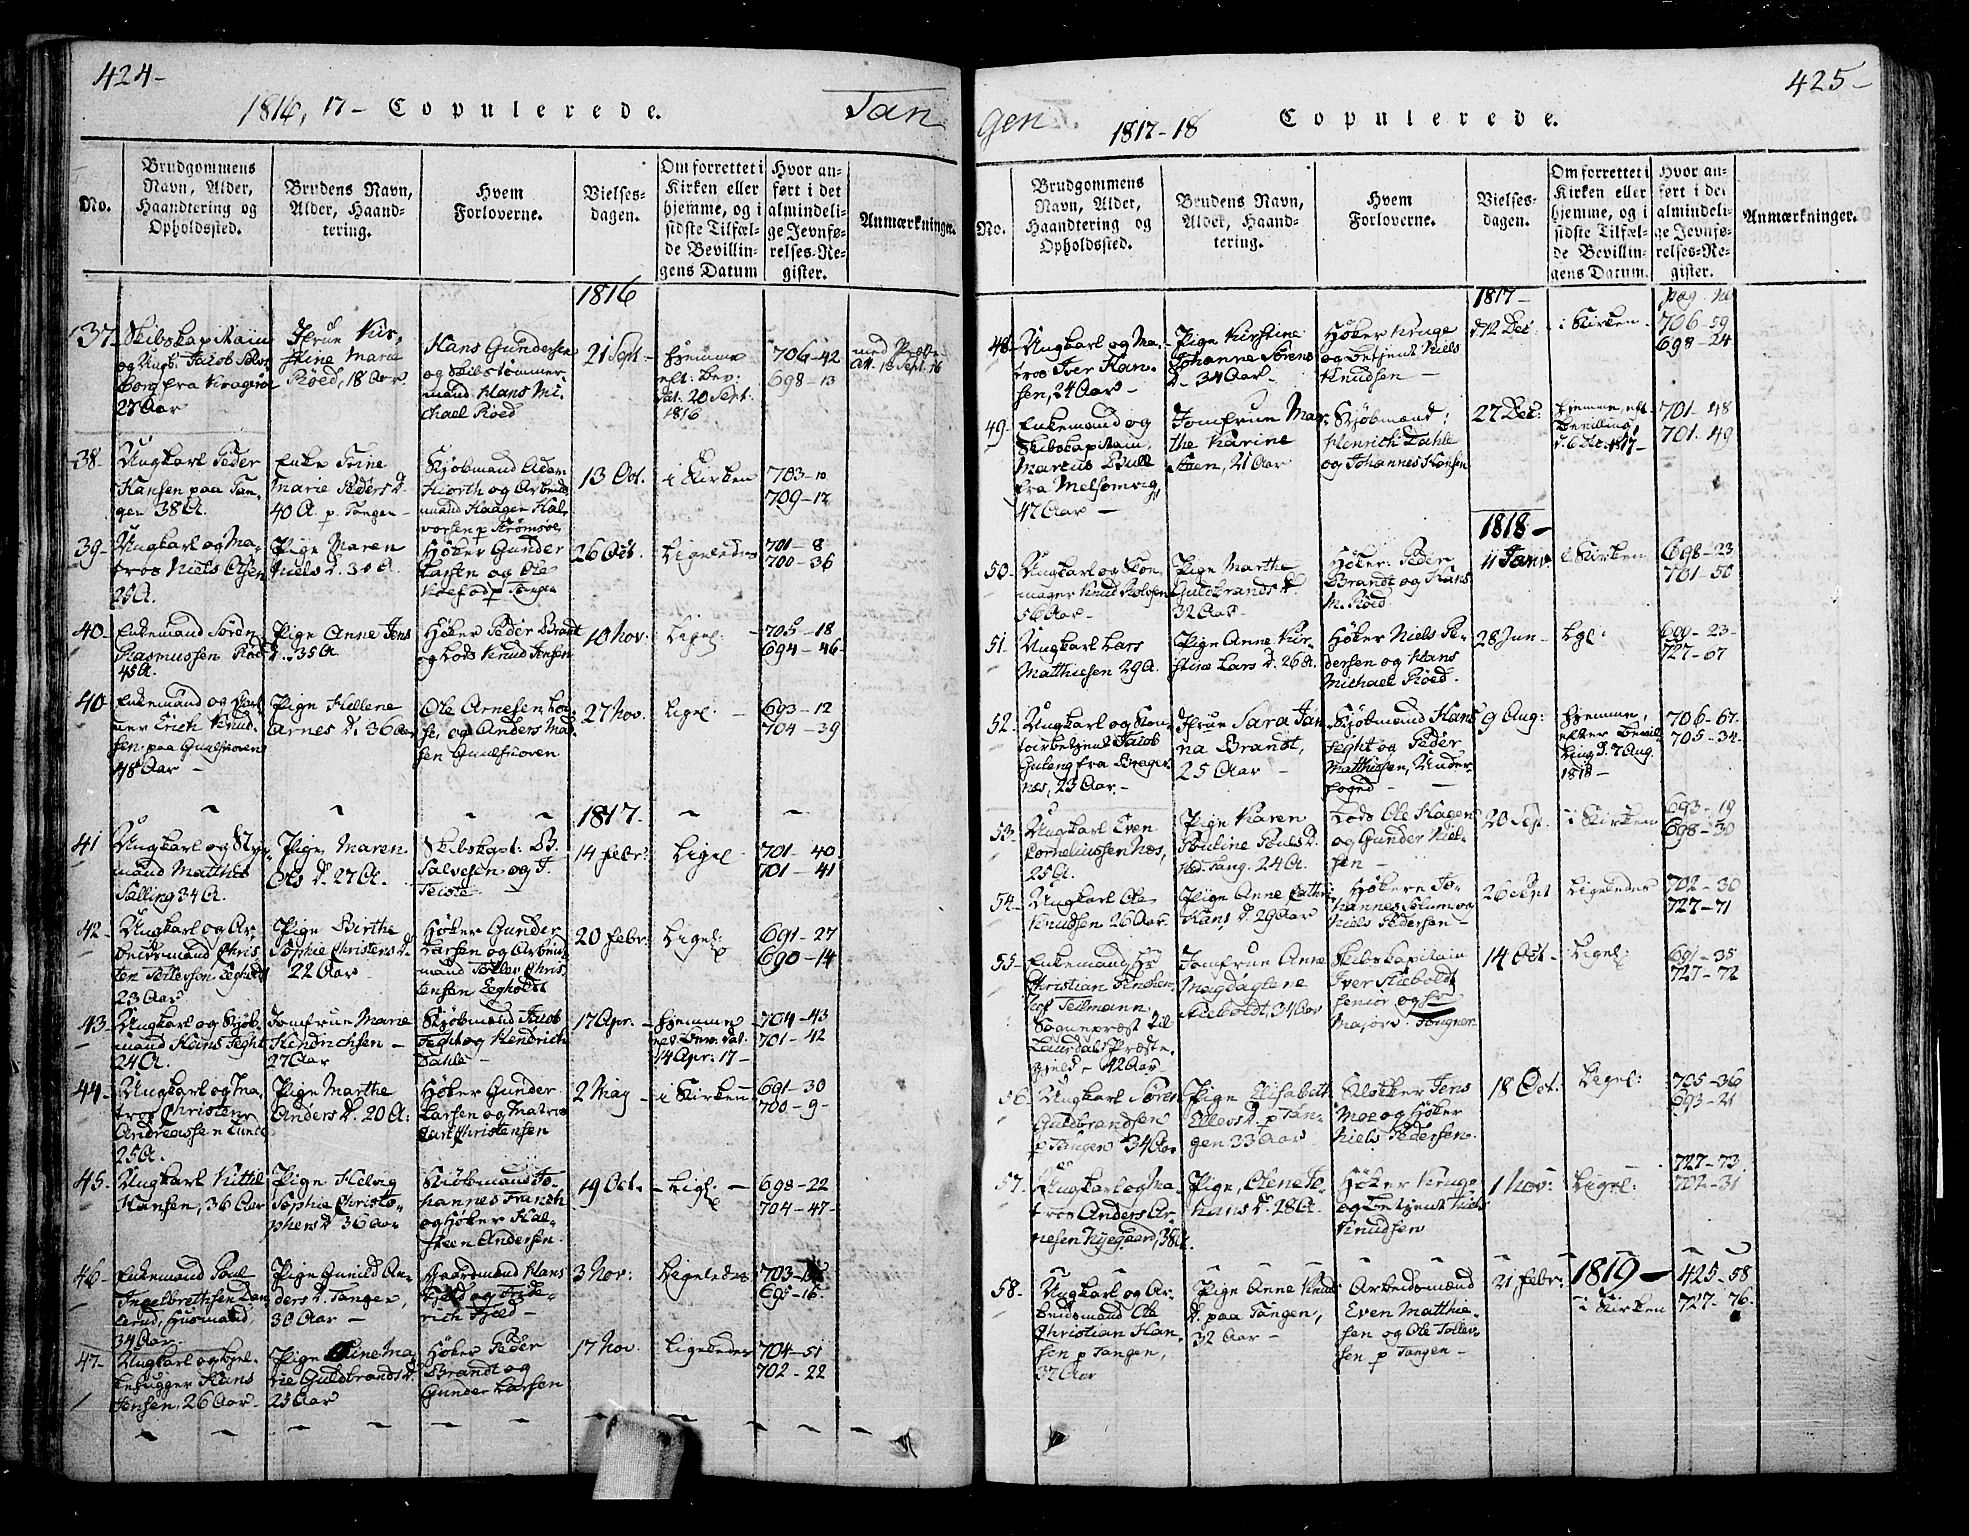 424-
1816, 17- Copulerede.
Tan
No.
Brudgommens
Navn, Alder,
Haandtering og
Opholdssted.
Brudens Navn,
Alder, Haand-
tering.
Hvem
Forloverne.
Vielses-
dagen.
Om forrettet i
Kirken eller
hjemme, og i
sidste Tilfæl-
de Bevillin-
gens Datum
Hvor an-
ført i det
almindeli-
ge Jevnfø-
relses-Re-
gister.
Anmærkninger.
1816
37.
Skibskapitain
og Ungk: Jacob
borg fra Kragerøe
27 Aar
Jfrue Kir-
stine Marie
Röed, 18 Aar
Hans Gundersen
og Skibstømmer-
mand Hans Mi-
chael Röed
21 Sept -
hjemme
eft: Bev:
dat. 20 Sept.
1816
706-42
698-13
38-
Ungkarl Peder
Hansen paa Tan-
gen 38 A.
Enke Trine
Marie Peders D.
40 A. p Tangen -
Kjöbmand Adam
Hiorth og Arbeids
mand Haagen Hal-
vorsen p Strömsöe
13 Oct.
i Kirken
703-10
709-17
39-
Ungkarl og Ma-
tros Niels Olsen
25 A.
Pige Maren
Niels D. 30 A.
Höker Gunder
Larsen og Ole
p Tangen
26 Oct.
Ligeledes
701-8
700-36
40-
Enkemand Sören
Rasmussen Röed
45 A.
Pige Anne Jens
D. 35 A.
Höker Peder Brandt
og Lods Knud Jensen
10 Nov:
Ligel: -
705-18
694-46-
40
Enkemand og
Erich Knud-
sen paa
48 Aar -
Pige Hellene
Arnes D. 36 Aar
Ole Arnesen
og Anders Mad-
sen
27 Nov.
Ligel: -
693-12
704-39
1817.
41
Ungkarl og Styr-
mand Matthis
Salling 34 A.
Pige Maren
Ols D. 27 A.
Skibskapt: B.
Salvesen og J.
Teiste -
14 Febr:
Ligel
701-40.
701-41
42-
Ungkarl og Ar-
beidsmand Chris-
ten Tollersen Egholdt
23 Aar
Pige Birthe
Sophie Christens D.
22 Aar -
Höker Gunder
Larsen og Arbeids
mand Toller Chris-
tensen Egholdt
20 Febr:
Ligel:
691-27
690-14
43-
Ungkarl og Kjöb-
mand Hans Feght
24 A.
Jomfrue Marie
Hendrichsen -
27 Aar
Kjöbmand Jacob
Feght og Hendrich
Dahle -
17 Apr. -
hjemme
eft Bev. dat.
14 Apr: 17 -
704-43
701-42
44-
Ungkarl og Ma-
tros Christen
Andreassen Lunde
25 A.
Pige Marthe
Anders D. 20 A:
Höker Gunder
Larsen og Matros
Carl Christensen
2 May -
i Kirken -
691-30
700-9-
45-
Ungkarl Kittil
Hansen, 36 Aar
Pige Helvig
Sophie Christo-
phers D. 36 Aar -
Kjöbmand Jo-
hannes Franch
og Höker Hal-
steen Andersen.
19 Oct.
- Ligl -
698-22
704-47-
46-
Enkemand Poul
Ingelbrethsen
Husmand,
34 Aar
Pige Gunild An-
ders D. Tangen,
30 Aar -
Gaardmand Hans
Fjeld og Fride-
rich Fjeld -
3 Nov:
Ligeledes
703-
695-16-
47-
Ungkarl og
Hans
Jensen, 26 Aar -
Pige Line Ma
rie Guldbrands D.
25 Aar
Höker Peder
Brandt og
Gunder Larsen
17 Nov
Ligeledes
704-51
702-22
425-
gen
1817-18
Copulerede.
No.
Brudgommens
Navn, Alder,
Haandtering og
Opholdssted.
Brudens Navn,
Alder, Haand-
tering.
Hvem
Forloverne.
Vielses-
dagen.
Om forrettet i
Kirken eller
hjemme, og i
sidste Tilfæl-
de Bevillin-
gens Datum.
Hvor an-
ført i det
almindeli-
ge Jevnfø-
relses-Re-
gister.
Anmærkninger.
1817-
pag. No
48-
Ungkarl og Ma-
tros Iver Han-
sen, 24 Aar -
Pige Kirstine
Johanne Sörens
D. 34 Aar -
Höker Kruge
og Betjent Niels
Knudsen -
d 12 Dec
- i Kirken -
706-59
698-24
49-
Enkemand og
Skibskapitain
Marcus Bull
fra Melsomvig,
47 Aar -
Jomfrue Mar-
the Karine
Steen, 21 Aar
Kjöbmænd:
Henrich Dahle
og Johannes Hansen
27 Dec.
hjemme, eft
Bevilling
701-48
701-49
1818-
50-
Ungkarl og Skoe-
mager Knud Rolfsen
56 Aar -
Pige Marthe
Guldbrands D.
32 Aar -
Höker: Peder
Brandt og Hans
M. Röed
11 Janv
i Kirken
698-23
701-50
51.
Ungkarl Lars
Matthiesen 29 A.
Pige Anne Kir-
stine Lars D. 26 A.
Höker Niels Pe-
dersen og Hans
Michael Röed.
28 Jun -
Lgl:
699-23-
727-67
52.
Ungkarl og Kon-
toirbetjent Jacob
Guleng fra Brager-
næs, 23 Aar, -
Jfrue Sara Jan
na Brandt,
25 Aar -
Kjöbmand Hans
Feght og Peder
Matthiesen, Under-
foged -
9 Aug:
hjemme,
efter Bevil-
ling d. 7 Aug.
1818 -
706-67.
705-34-
53-
Ungkarl Even
Corneliussen Næs,
25 A.
Pige Karen
Pouline Pouls D.
ved Tang. 24 A.
Lods Ole Hagen
og Gunder Niel-
sen -
20 Sept.
- i Kirken
693-19
698-30
54-
Ungkarl Ole
Knudsen 26 Aar
Pige Anne Cathri
Hans D. 29 Aar
Hökerne Jo-
hannes Solum og
Niels Pedersen -
26 Sept
Ligeledes
702-30
727-71
55-
Enkemand Hr
Christian
Tellmann
Sognepræst til
Laurdals Præste-
gjeld - 42 Aar -
Jomfrue Anne
Magdaglene
Sieboldt, 34 Aar
Skibskapitain
Iver Sieboldt
senior og Hr
Major
14 Oct -
Ligel:
691-35
727-72
56-
Ungkarl Sören
Guldbrandsen
p Tangen 34 Aar
Pige Elisabeth
Ellevs D. p Tan-
gen 33 Aar
Klokker Jens
Moe og Höker
Niels Pedersen.
18 Oct.
Ligel:
705-36
693-21
57-
Ungkarl og Ma-
tros Anders Ar-
nesen Nyegaard, 38 A.
Pige, Olene Jo-
hans D. 28 A.
Höker Kruge
og Betjent Niels
Knudsen
1 Nov:
Ligel:
727-73.
702-31
1819-
58-
Ungkarl og Ar-
beidsmand Ole
Christian Han-
sen p Tangen,
37 Aar
Pige Anne Knuds
D. paa Tangen,
32 Aar -
Arbeidsmænd
Even Matthie-
sen og Ole Toller-
sen p Tangen -
21 Febr:
- i Kirken
425-58
727-76-